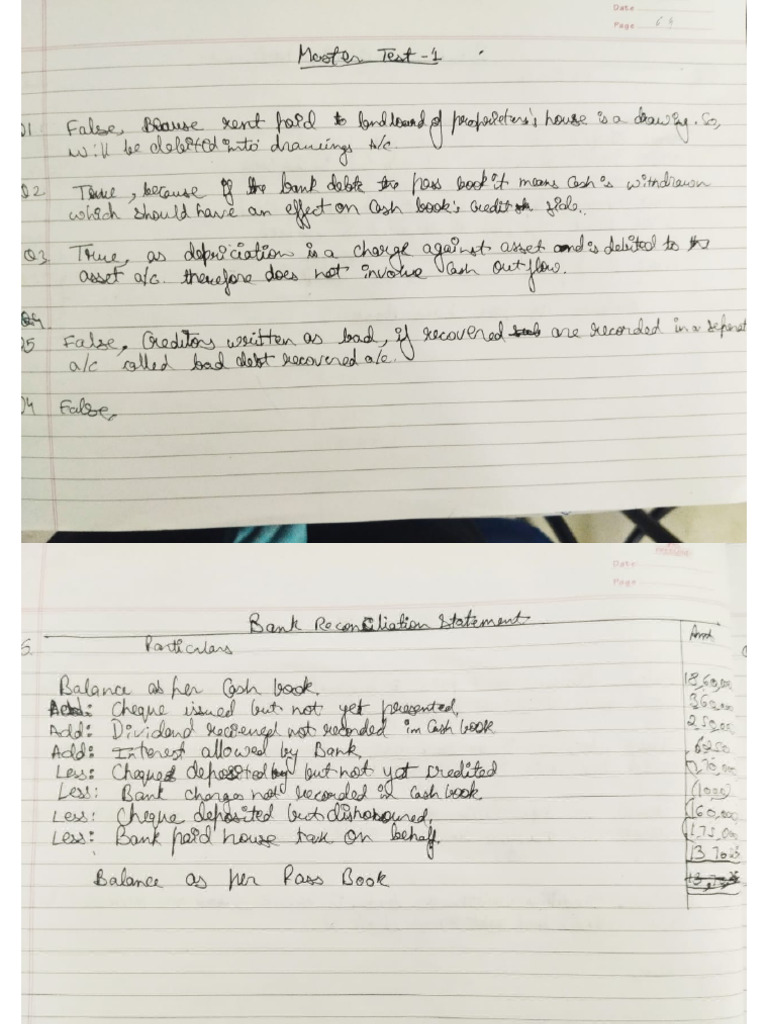 Date
Page 64
Master Test-1
Q1 False, Because rent paid to landloard of proprietors's house is a drawing. So,
will be debited into drawings a/c.
Q2 True, because if the bank debits the pass book it means cash is withdrawn
which should have an effect on cash book's credit side.
Q3 True, as depriciation is a charge against asset and is debited to the
asset a/c. therefore does not involve cash outflow.
Q4
Q5 False, Creditors written as bad, if recovered are recorded in a seperat
a/c called bad debt recovered a/c.
Q4 False,
Date
Page
Bank Reconciliation Statement
Particulars Amt
Balance as per Cash book.
Add: Cheque issued but not yet presented,
Add: Dividend recieved not recorded in Cash book
Add: Interest allowed by Bank 6250
Less: Cheques deposited but not yet credited
Less: Bank charges not recorded in cash book (1000)
Less: Cheque deposited but dishonoured,
Less: Bank paid house tax on behalf.
Balance as per Pass Book